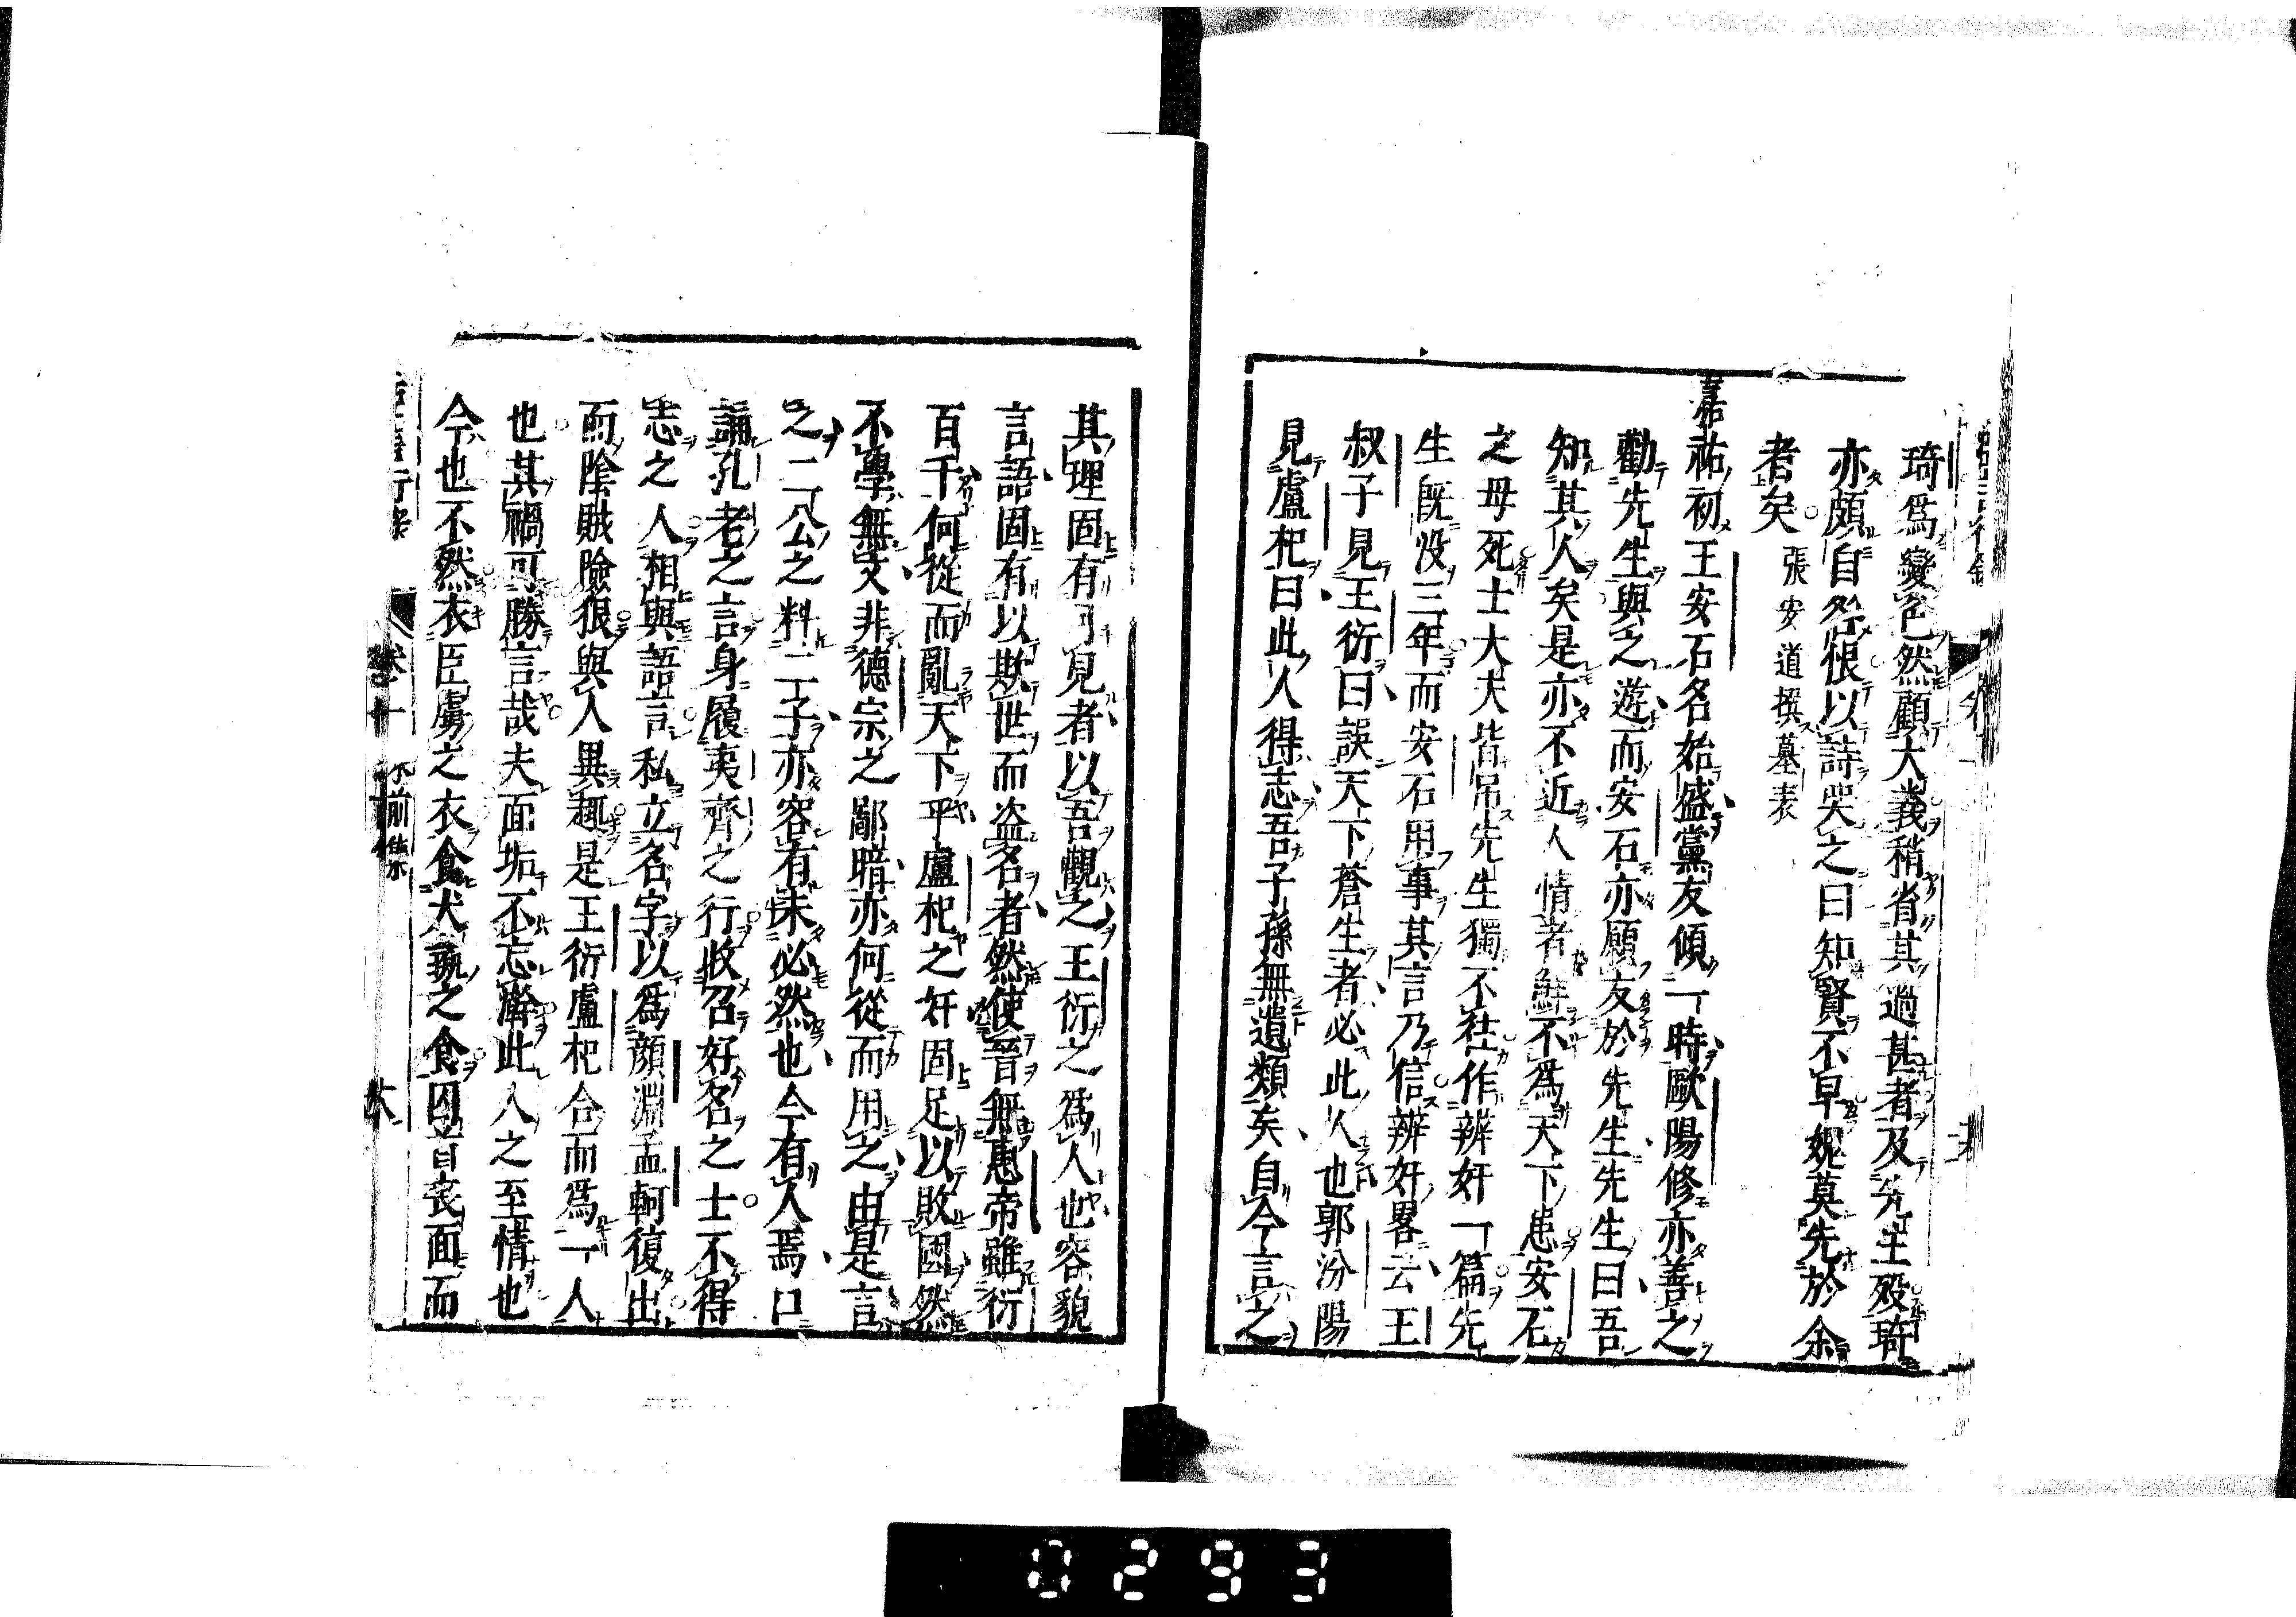 琦爲變色然顧大義稍省其過甚者及先生殁琦
亦頗自咎恨以詩哭之曰知賢不早妮莫先於余
者矣 張安道撰墓表
嘉祐初王安石名始盛黨友傾一時歐陽修亦善之
勸先生與之遊而安石亦願友於先生先生曰吾
知其人矣是亦不近人情者鮮不爲天下患安石
之母死士大夫皆吊先生獨不往作辨奸一篇先
生既没三年而安石用事其言乃信辨奸畧云王
叔子見王衍曰誤天下蒼生者必此人也郭汾陽
見盧杞曰此人得志吾子孫無遺類矣自今言之
其理固有可見者以吾觀之王衍之爲人也容貌
言語固有以欺世而盗名者然使晉無惠帝雖衍
百千何從而亂天下乎盧杞之奸固足以敗國然
不學無文非德宗之鄙暗亦何從而用之由是言
之二公之料二子亦容有未必然也今有人焉口
誦孔老之言身履夷齊之行收召好名之士不得
志之人相與語言私立名字以爲顔淵孟軻復出
而陰賊險狠與人異趣是王衍盧杞合而爲一人
也其禍可勝言哉夫面垢不忘澣此人之至情也
今也不然衣臣虜之衣食犬彘之食囚首喪面而
卷十 前集
0293